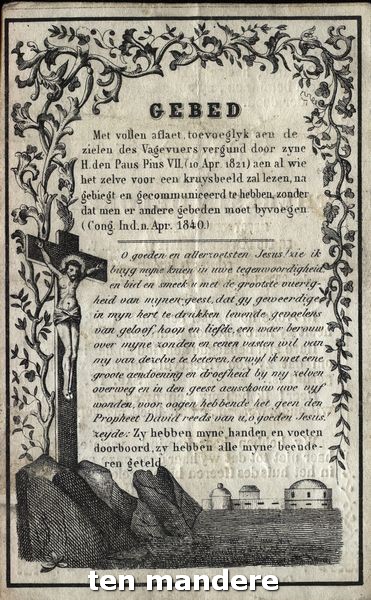 GEBED
Met vollen aflaet, toevoeglyk aen de
zielen des Vagevuers vergund door zyne
H. den Paus Pius VII, (10 Apr. 1821) aen al wie
het zelve voor een kruysbeeld zal lezen, na
gebiegt en gecommuniceerd te hebben, zonder
dat men er andere gebeden moet byvoegen
(Cong. Ind. n. Apr. 1840.)
O goeden en allerzoetsten Jesus! zie ik
buyg myne knien in uwe tegenwoordigheid
en bid en smeek u met de grootste vuerig-
heid van mynen geest, dat gy geweerdige
in myn hert te drukken levende gevoelens
van geloof, hoop en liefde, een waer berouw
over myne zonden en eenen vasten wil van
my van dezelve te beteren, terwyl ik met eene
groote aendoening en droefheid by my zelven
overweg en in den geest aenschouw uwe vyf
wonden, voor oogen hebbende het geen den
Propheet David reeds van u, o goeden Jesus!
zeyde: Zy hebben myne handen en voeten
doorboord, zy hebben alle myne beende-
ren geteld.
ten mandere